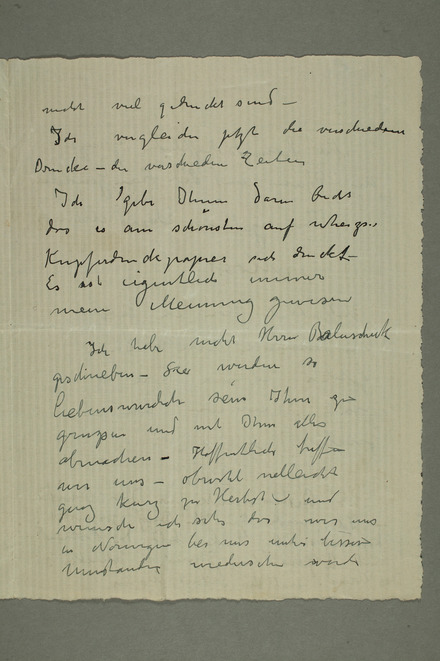 nicht viel gedruckt sind –
Ich vergleiche jetzt die verschiedenen
Drucke – die verschieden Zeiten
Ich gebe Ihnen darin Recht
das es am schönsten auf
Kupferdruckpapier sich druckt –
Es ist eigentlich immer
meine Meinung gewesen
Ich habe nicht Herrn
geschrieben – Sie werden so
liebenswürdig sein Ihm zu
grüssen und mit Ihm alles
abmachen – Hoffentlich treffen
wir uns – obwohl vielleicht
ganz kurz zu Herbst – und
wünsche ich sehr das wir uns
in Norwegen bei mir unter bessere
Umstande wiedersehen werde